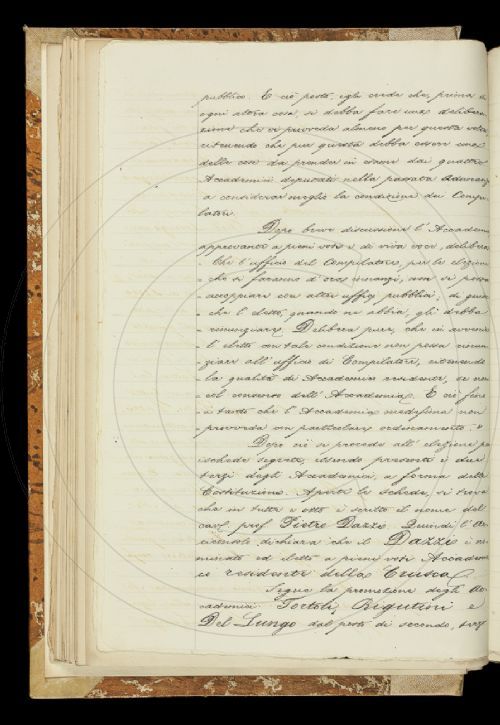 pubblico. E ciò posto, egli crede che, prima d
ogni altra cosa, si debba fare una delibera-
zione che si provveda almeno per questa volta
ritenendo che pur questa debba essere una
delle cose da prender in esame dai quattro
Accademici deputati nella passata Adunanza
a considerar meglio la condizione dei Compi-
latori.
Dopo breve discussione l'Accademia
approvante a pieni voti e di viva voce, delibera
- Che l'ufficio del Compilatore, per le elezioni
- che si faranno d'ora innanzi, non si possa
- accoppiare con altri uffizj pubblici; di guisa
- che l'eletto, quando ne abbia, gli debba
- rinunziare. Delibera pure, che in avvenire
- l'eletto con tale condizione non possa rinun-
- ziare all'ufficio di Compilatore, ritenendo
- la qualità di Accademico residente, se non
- col consenso dell'Accademia. E ciò fino
- a tanto che l'Accademia medesima non
- provveda con particolare ordinamento. "
Dopo ciò si procede all'elezione per
ischede segrete, essendo presenti i due
terzi degli Accademici, a forma delle
Costituzioni. Aperte le schede, si trova
che in tutte e otto è scritto il nome del
cav. prof. Pietro Dazzi. Quindi l'Ar-
ciconsolo dichiara che il Dazzi è no-
minato ed eletto a pieni voti Accademi-
co residente della Crusca.
Segue la promozione degli Ac-
cademici Tortoli, Rigutini e
Del Lungo dal posto di secondo, terzo